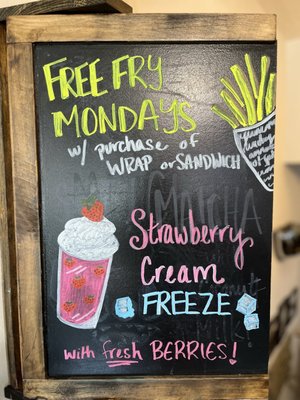 FREE FRY
MONDAYS
w/ purchase of
WRAP or SANDWICH
MATCHA
Strawberry
Cream
FREEZE
with fresh BERRIES!